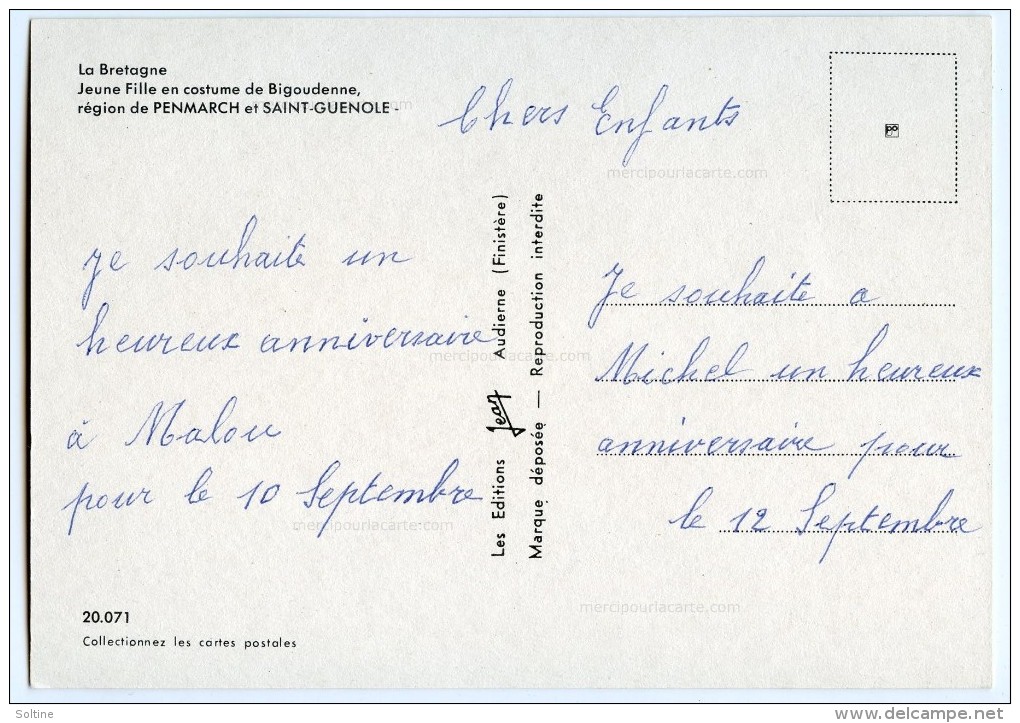 La Bretagne
Jeune Fille en costume de Bigoudenne,
région de PENMARCH et SAINT-GUENOLE -
Chers Enfants
je souhaite un
heureux anniversaire
à Malou
pour le 10 Septembre
Les Editions Jean Audierne (Finistère)
Marque déposée — Reproduction interdite
Je souhaite a
Michel un heureux
anniversaire pour
le 12 Septembre
20.071
Collectionnez les cartes postales
mercipourlacarte.com
mercipourlacarte.com
mercipourlacarte.com
mercipourlacarte.com
mercipourlacarte.com
Soltine
www.delcampe.net